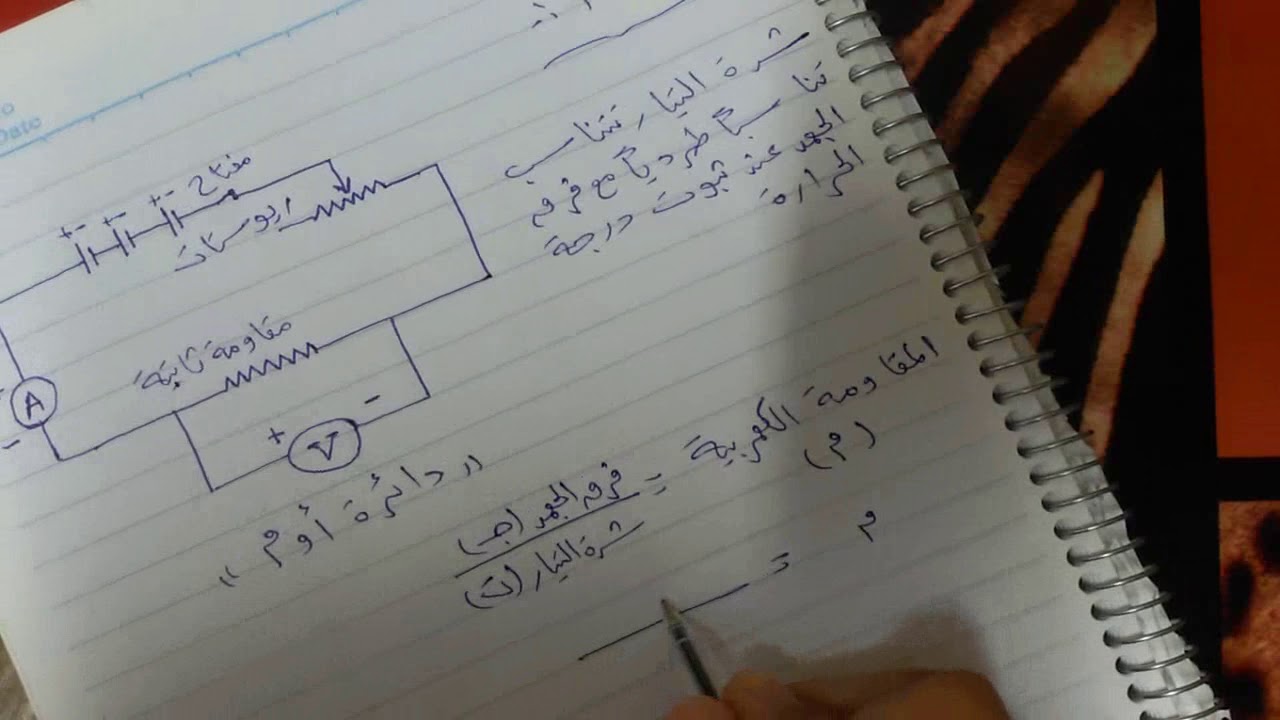 Date
شدة التيار تتناسب
تناسباً طردياً مع فرق
الجهد عند ثبوت درجة
الحرارة
+ - + - + -
مفتاح
ريوستات
مقاومة ثابتة
A
-
+ V -
" دائرة أوم "
المقاومة الكهربية = فرق الجهد (جـ)
(م) شدة التيار (ت)
م =